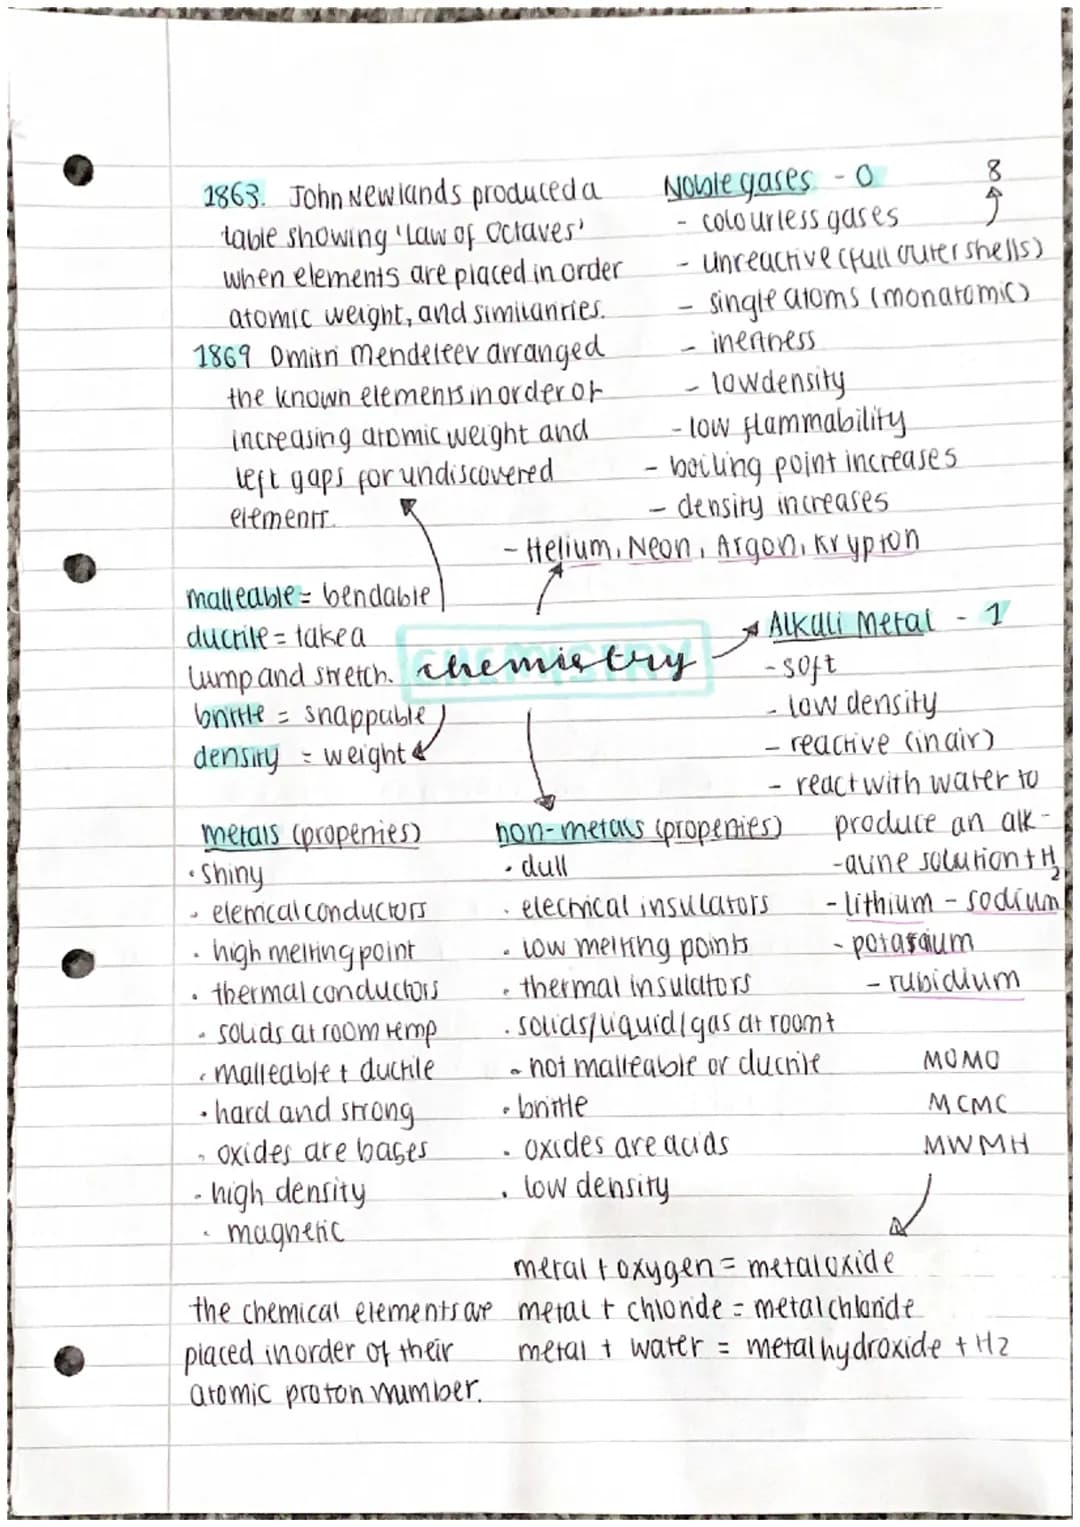 1863. John Newlands produced a
table showing 'Law of Octaves'
when elements are placed in order
atomic weight, and similarities.
1869 Dmitri Mendeleev arranged
the known elements in order of
increasing atomic weight and
left gaps for undiscovered
elements.
Noble gases - 0
8
- colourless gases
- unreactive (full outer shells)
- single atoms (monatomic)
- inertness
- low density
- low flammability
- boiling point increases
- density increases
- Helium, Neon, Argon, Krypton
malleable = bendable
ductile = take a
lump and stretch.
brittle = snappable
density = weight
CHEMISTRY
chemistry
Alkali Metal - 1
- soft
- low density
- reactive (in air)
- react with water to
produce an alk-
-aline solution + H2
- lithium - sodium
- potassium
- rubidium
metals (properties)
• shiny
• electrical conductors
• high melting point
• thermal conductors
• solids at room temp
• malleable + ductile
• hard and strong
• oxides are bases
• high density
• magnetic
non-metals (properties)
• dull
• electrical insulators
• low melting points
• thermal insulators
• solids/liquid/gas at room t
• not malleable or ductile
• brittle
• oxides are acids
• low density
MOMO
MCMC
MWMH
metal + oxygen = metal oxide
metal + chloride = metal chloride
metal + water = metal hydroxide + H2
the chemical elements are
placed in order of their
atomic proton number.